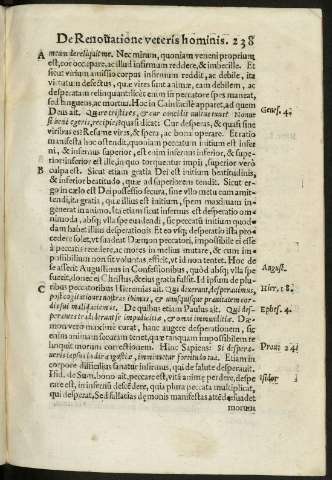 De Renouatione veteris hominis. 238
A meum dereliquit me. Nec mirum, quoniam veneni proprium
est, cor occupare, ac illud infirmum reddere, & imbecille. Et
sicut virium amissio corpus infirmum reddit, ac debile, ita
virtutum defectus, quæ vires sunt animæ, eam debilem, ac
desperatam relinquunt: sicut enim in peccatore spes maneat,
sed languens, ac mortua. Hoc in Cain facilè apparet, ad quem
Deus ait. Quare tristeris, & cur concidit vultus tuus? Nonne
si bene egeris, recipies: quasi dicat: Cur desperas, & quasi sine
viribus es? Resume vires, & spera, ac bona operare. Et ratio
manifesta hoc ostendit, quoniam peccatum initium est infer
ni, & infernus superior, est enim infernus inferior, & supe-
rior: inferior est ille, in quo torquentur impij, superior verò
B culpa est. Sicut etiam gratia Dei est initium beatitudinis,
& inferior beatitudo, quæ ad superiorem tendit. Sicut er-
go in cælo est Dei possessio secura, sine vllo metu eam amit-
tendi, ita gratia, quæ illius est initium, spem maximam in-
generat in animo. Ita etiam sicut infernus est desperatio om-
nimoda, absque vlla spe euadendi, sic peccatum initium quod-
dam habet illius desperationis Et eo vsque desperatio ista pro-
cedere solet, vt suadeat Dæmon peccatori, impossibile ei esse
à peccatis recedere, ac mores in melius mutare, & cum im-
possibilium non sit voluntas, efficit, vt id non tentet. Hoc de
se asserit Augustinus in Confessionibus, quòd absque vlla spe
fuerit, donec ei Christus, & eius gratia fulsit. Id ipsum de plu-
C ribus peccatoribus Hieremias ait. Qui dixerunt, desperauimus,
post cogitationes nostras ibimus, & vnusquisque prauitatem cor-
dis sui mali faciemus. De quibus etiam Paulus ait. Qui des-
perantes tradiderunt se impudicitiæ, & omni immunditiæ. Dæ-
mon verò maximè curat, hanc augere desperationem, sic
enim animam securam tenet, quæ tanquam impossibilem re
linquit morum correctionem. Hinc Sapiens: Si despera-
ueris lapsus in die angustiæ, imminuetur fortitudo tua. Etiam in
corpore difficilius sanatur infirmus, qui de salute desperauit.
Isid. de Sum. bono ait, peccare est, vitã animæ perdere, despe
rare est, in infernũ descẽdere, quia plura peccata multiplicat,
qui desperat. Sed fallacias dæmonis manifestas attẽde, suadet
morum
Genes. 4.
August.
Hier. 18.
Ephes. 4.
Prou. 24.
Isidor